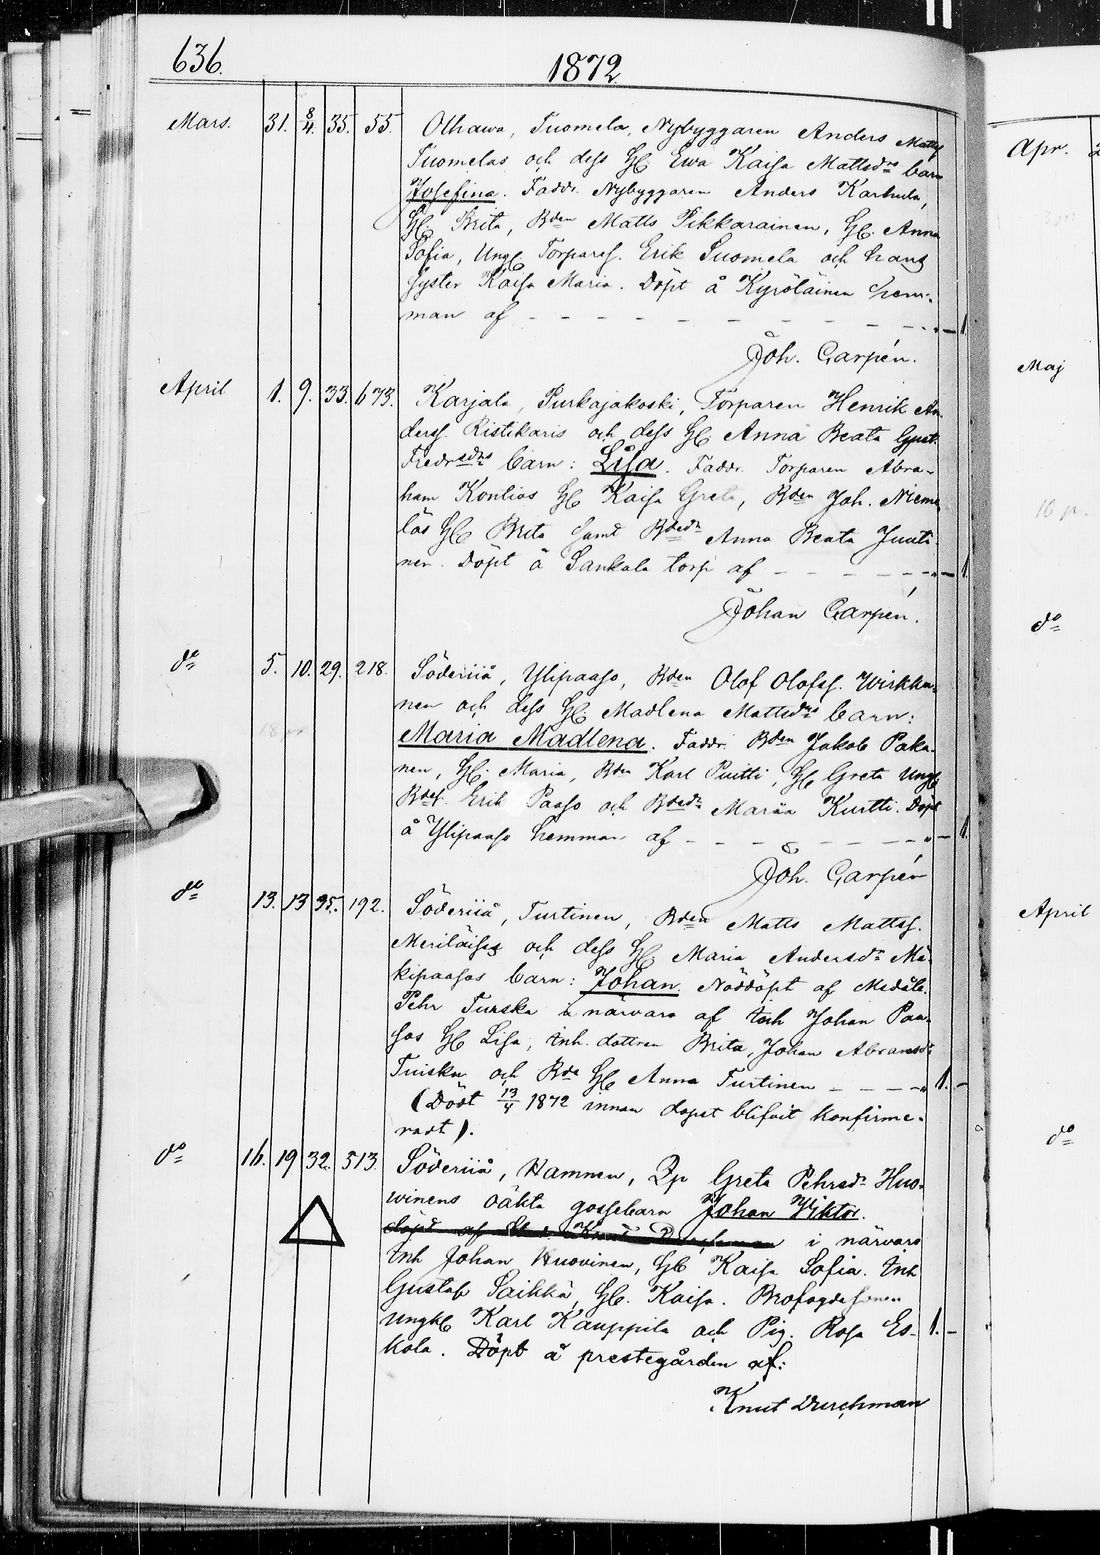 636.
1872
Mars. 31. 8/4. 35. 55. Olhawa, Tuomela, Nybyggaren Anders Mattsf
Tuomelas och dess Hu Ewa Kaisa Mattsdrs barn
Josefina. Faddr. Nybyggaren Anders Karhula,
Hu Brita, Bden Matts Pikkarainen, Hu Anna
Sofia, Ungk Torparef. Erik Tuomela och hans
syster Kaisa Maria. Döpt å Kyröläinen hem-
man af — 1
Joh. Carpén.
April 1. 9. 33. 673. Karjala, Purkajakoski, Torparen Henrik An-
dersf. Ristikaris och dess Hu Anna Beata Gust.
Fredrsdrs barn: Lisa. Faddr. Torparen Abra-
ham Kontios Hu Kaisa Greta, Bden Joh. Nieme-
läs Hu Brita samt Bdedr Anna Beata Juuti-
nen. Döpt å Sankala torp af — 1.
Johan Carpén.
do 5. 10. 29. 218. Söderiiå, Ylipaaso, Bden Olof Olofsf. Wirkku-
nen och dess Hu Madlena Mattsdrs barn:
Maria Madlena. Faddr. Bden Jakob Paka-
nen, Hu Maria, Bden Karl Puitti, Hu Greta ungk
Bdef. Erik Paaso och Bdedr Maria Kurtti. Döpt
å Ylipaaso hemman af — 1.
Joh. Carpén
do 13. 13 35. 192. Söderiiå, Turtinen, Bden Matts Mattsf.
Meriläises och dess Hu Maria Andersdr Mä-
kipaasos barn: Johan. Nöddöpt af Msdåle.
Pehr Turska i närvaro af Inh Johan Paa-
sos Hu Lisa, Inh. dottren Brita, Johan Abramsdr
Tuiska och Bde Hu Anna Turtinen — 1. -
(Dödt 13/4 1872 innan dopet blifvit konfirme-
radt).
do 16. 19 32. 513. Söderiiå, Hamnen, Qp Greta Pehrsdr Huo-
winens oäkta gossebarn Johan Viktor.
i närvaro
Inh Johan Huovinen, Hu Kaisa Sofia. Inh
Gustaf Saikkä, Hu. Kaisa. Brofogdesonen
ungk Karl Kauppila och Pig. Rosa Es- 1. -
kola. Döpt å prestegården af:
Knut Durchman
Apr.
Maj
do
April
do